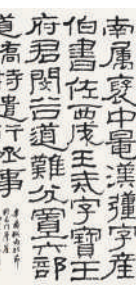 南屬褒中鼂漢彊字產
伯書佐西成王戒字寶王
府君閔谷道難分置六部
道橋特遣行丞事